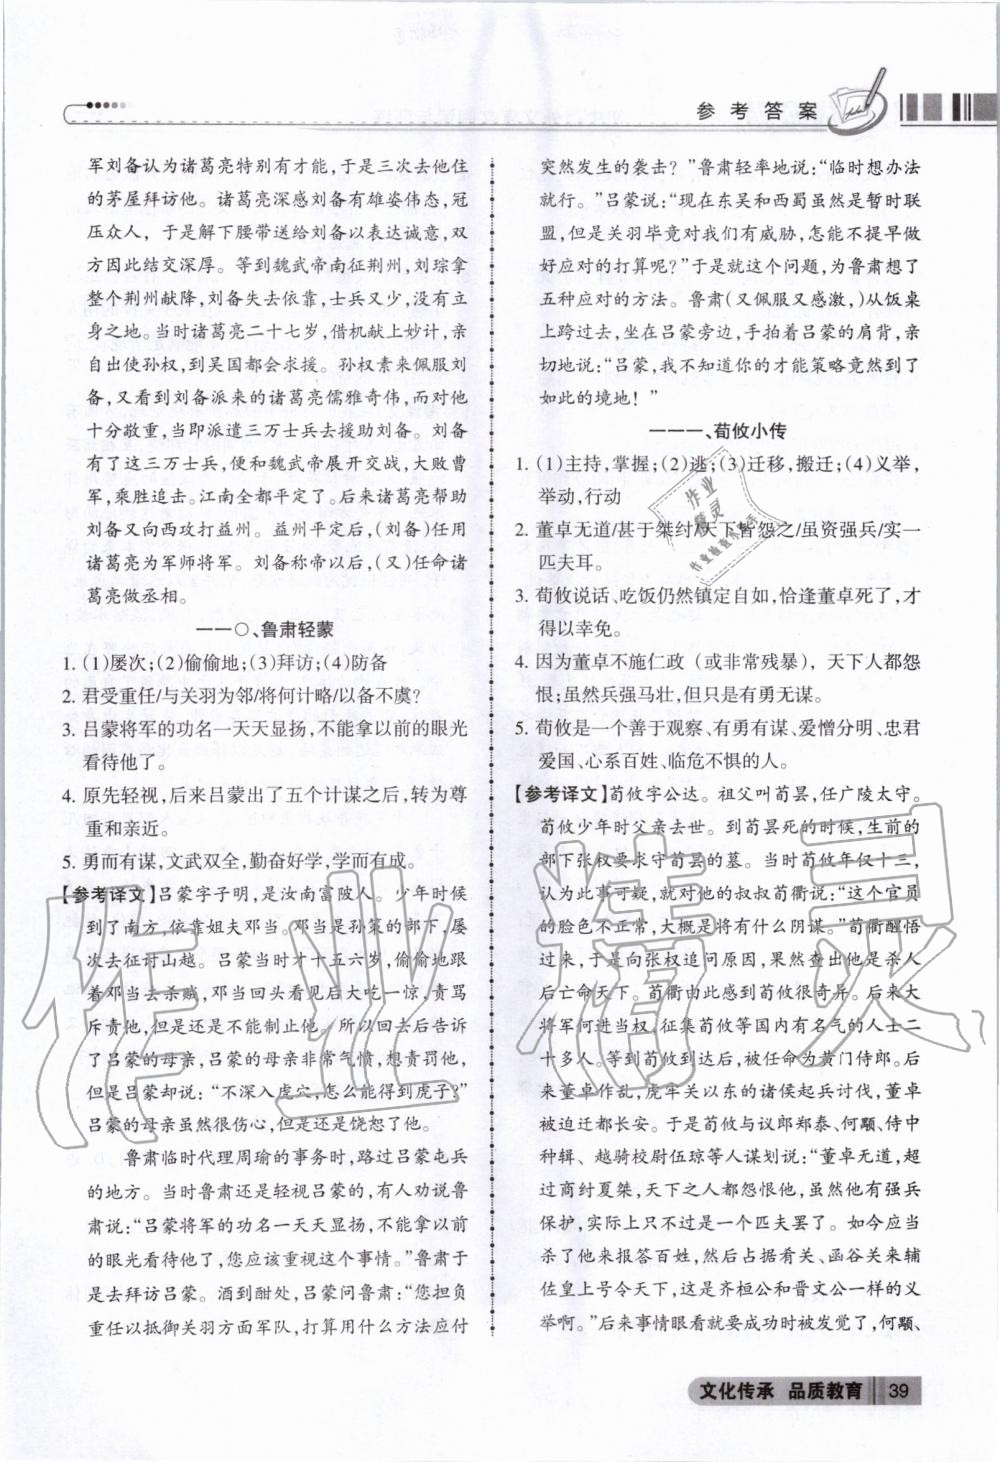 参考答案
军刘备认为诸葛亮特别有才能，于是三次去他住
的茅屋拜访他。诸葛亮深感刘备有雄姿伟态，冠
压众人，于是解下腰带送给刘备以表达诚意，双
方因此结交深厚。等到魏武帝南征荆州，刘琮拿
整个荆州献降，刘备失去依靠，士兵又少，没有立
身之地。当时诸葛亮二十七岁，借机献上妙计，亲
自出使孙权，到吴国都会求援。孙权素来佩服刘
备，又看到刘备派来的诸葛亮儒雅奇伟，而对他
十分敬重，当即派遣三万士兵去援助刘备。刘备
有了这三万士兵，便和魏武帝展开交战，大败曹
军，乘胜追击。江南全都平定了。后来诸葛亮帮助
刘备又向西攻打益州。益州平定后，（刘备）任用
诸葛亮为军师将军。刘备称帝以后，（又）任命诸
葛亮做丞相。
一一〇、鲁肃轻蒙
1. (1)屡次；(2)偷偷地；(3)拜访；(4)防备
2. 君受重任/与关羽为邻/将何计略/以备不虞？
3. 吕蒙将军的功名一天天显扬，不能拿以前的眼光
看待他了。
4. 原先轻视，后来吕蒙出了五个计谋之后，转为尊
重和亲近。
5. 勇而有谋，文武双全，勤奋好学，学而有成。
【参考译文】吕蒙字子明，是汝南富陂人。少年时候
到了南方，依靠姐夫邓当。邓当是孙策的部下，屡
次去征讨山越。吕蒙当时才十五六岁，偷偷地跟
着邓当去杀贼，邓当看见后大吃一惊，责骂
斥责他，但是还是不能制止他。所以回去后告诉
了吕蒙的母亲，吕蒙的母亲非常气愤，想责罚他，
但是吕蒙却说：“不深入虎穴，怎么能得到虎子？”
吕蒙的母亲虽然很伤心，但是还是饶恕了他。
鲁肃临时代理周瑜的事务时，路过吕蒙屯兵
的地方。当时鲁肃还是轻视吕蒙的，有人劝说鲁
肃说：“吕蒙将军的功名一天天显扬，不能拿以前
的眼光看待他了，您应该重视这个事情。”鲁肃于
是去拜访吕蒙。酒到酣处，吕蒙问鲁肃：“您担负
重任以抵御关羽方面军队，打算用什么方法应付
突然发生的袭击？”鲁肃轻率地说：“临时想办法
就行。”吕蒙说：“现在东吴和西蜀虽然是暂时联
盟，但是关羽毕竟对我们有威胁，怎能不提早做
好应对的打算呢？”于是就这个问题，为鲁肃想了
五种应对的方法。鲁肃（又佩服又感激，）从饭桌
上跨过去，坐在吕蒙旁边，手拍着吕蒙的肩背，亲
切地说：“吕蒙，我不知道你的才能策略竟然到了
如此的境地！”
一一一、荀攸小传
1. (1)主持，掌握；(2)逃；(3)迁移，搬迁；(4)义举，
举动，行动
2. 董卓无道/甚于桀纣/天下皆怨之/虽资强兵/实一
匹夫耳。
3. 荀攸说话、吃饭仍然镇定自如，恰逢董卓死了，才
得以幸免。
4. 因为董卓不施仁政（或非常残暴），天下人都怨
恨；虽然兵强马壮，但只是有勇无谋。
5. 荀攸是一个善于观察、有勇有谋、爱憎分明、忠君
爱国、心系百姓、临危不惧的人。
【参考译文】荀攸字公达。祖父叫荀昙，任广陵太守。
荀攸少年时父亲去世。到荀昙死的时候，生前的
部下张权要求守荀昙的墓。当时荀攸年仅十三，
认为此事可疑，就对他的叔叔荀衢说：“这个官员
的脸色不正常，大概是将有什么阴谋。”荀衢醒悟
过来，于是向张权追问原因，果然查出他是杀人
后亡命天下。荀衢由此感到荀攸很奇异。后来大
将军何进当权，征集荀攸等国内有名气的人士二
十多人。等到荀攸到达后，被任命为黄门侍郎。后
来董卓作乱，虎牢关以东的诸侯起兵讨伐，董卓
被迫迁都长安。于是荀攸与议郎郑泰、何颙、侍中
种辑、越骑校尉伍琼等人谋划说：“董卓无道，超
过商纣夏桀，天下之人都怨恨他，虽然他有强兵
保护，实际上只不过是一个匹夫罢了。如今应当
杀了他来报答百姓，然后占据肴关、函谷关来辅
佐皇上号令天下，这是齐桓公和晋文公一样的义
举啊。”后来事情眼看就要成功时被发觉了，何颙、
文化传承 品质教育 39
作业精灵